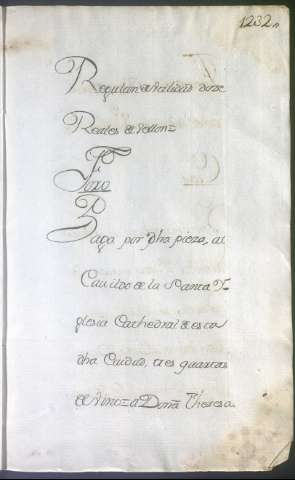 1232
Regulan de utilidad doze
Reales de vellon
Foro
Paga por dha pieza, al
Cavildo de la Santa Y
glesia Cathedral de esta
dha Ciudad, tres quartas
de Dona Theresa